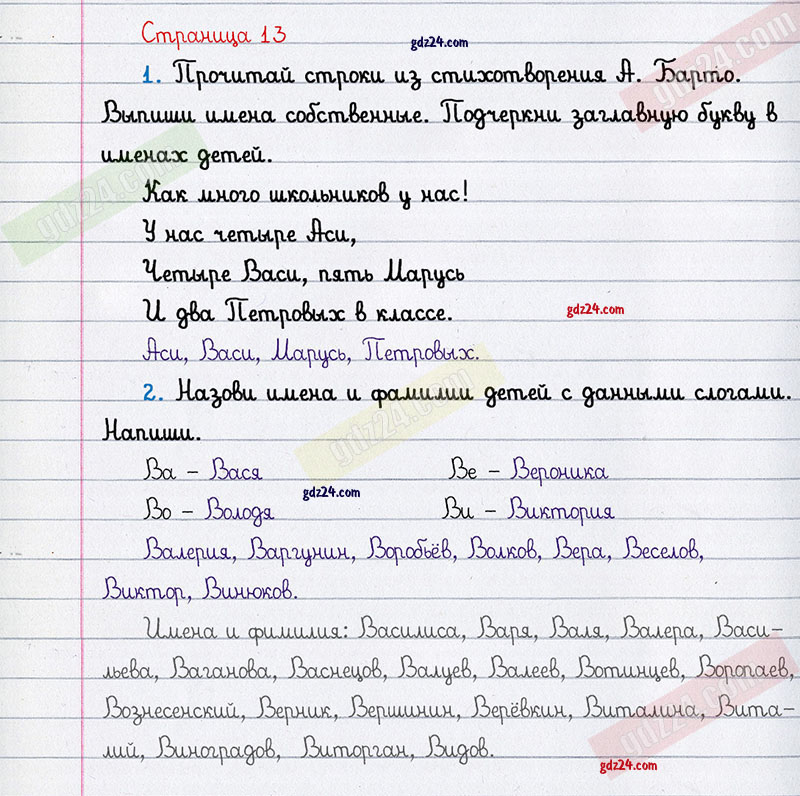 Страница 13
gdz24.com
1. Прочитай строки из стихотворения А. Барто.
Выпиши имена собственные. Подчеркни заглавную букву в
именах детей.
Как много школьников у нас!
У нас четыре Аси,
Четыре Васи, пять Марусь
И два Петровых в классе.
gdz24.com
Аси, Васи, Марусь, Петровых.
2. Назови имена и фамилии детей с данными слогами.
Напиши.
Ва – Вася Ве – Вероника
gdz24.com
Во – Володя Ви – Виктория
Валерия, Варгунин, Воробьёв, Волков, Вера, Веселов,
Виктор, Винюков.
Имена и фимилия: Василиса, Варя, Валя, Валера, Васи-
льева, Ваганова, Васнецов, Валуев, Валеев, Вотинцев, Воропаев,
Вознесенский, Верник, Вершинин, Верёвкин, Виталина, Вита-
лий, Виноградов, Виторган, Видов.
gdz24.com
gdz24.com
gdz24.com
gdz24.com
gdz24.com